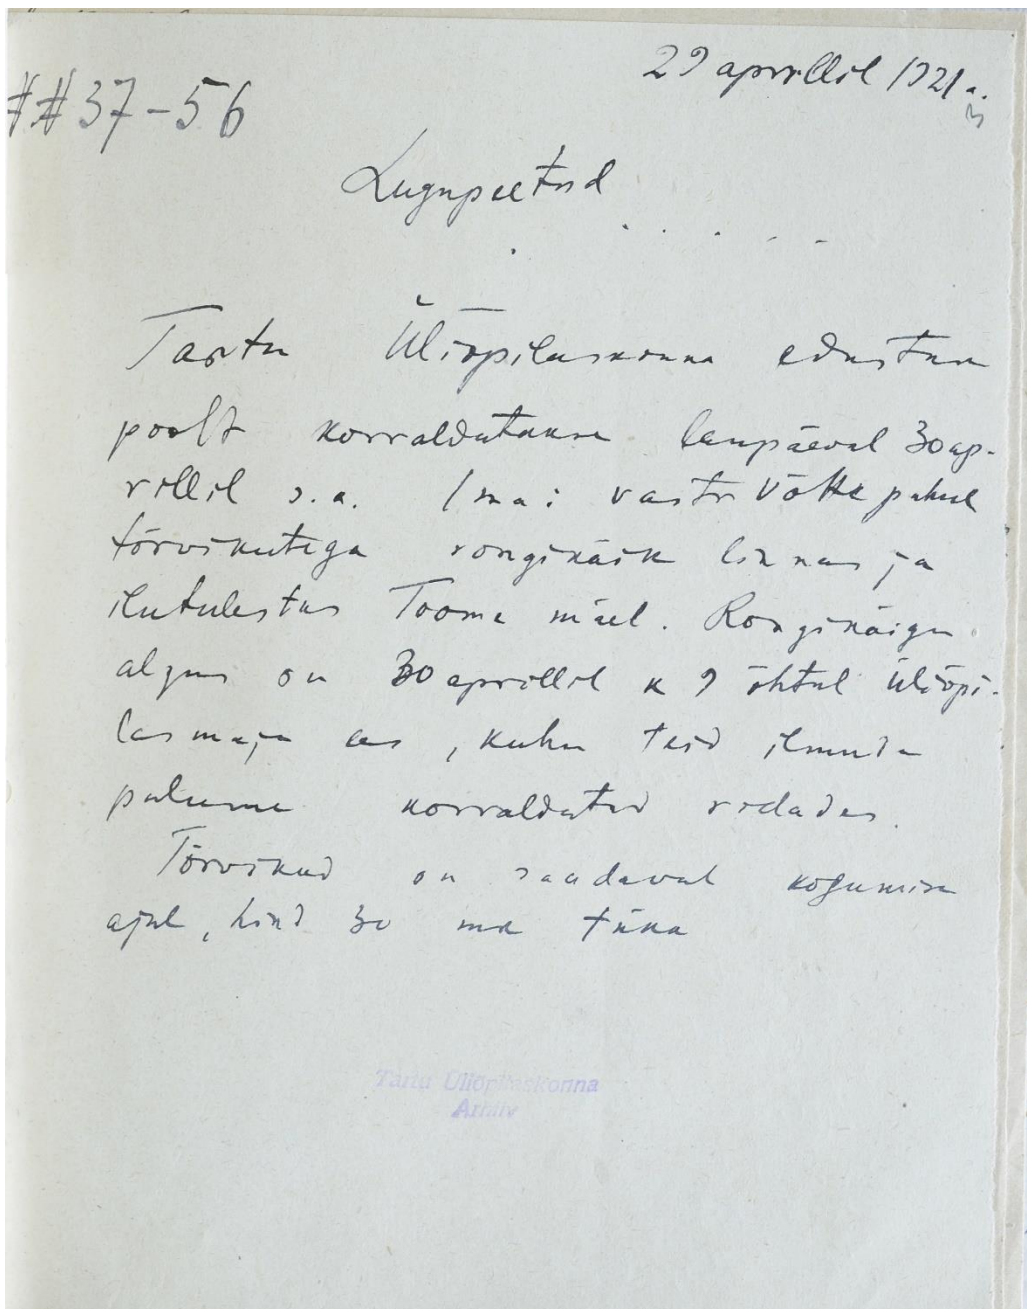 29 aprillil 1921 a.
## 37-56
Lugupeetud
. . . . . - -
Tartu Üliõpilaskonna edustuse
poolt korraldatakse laupäeval 30 ap-
rillil s.a. 1 mai vastu võtte puhul
tõrvikutega rongikäik linnas ja
ilutulestus Toome mäel. Rongikäigu
algus on 30 aprillil k 9 õhtul üliõpi-
lasmaja ees, kuhu teid ilmuda
palume korraldatud ridades.
Tõrvikud on saadaval kogumise
ajal, hind 30 mk tükk
Tartu Üliõpilaskonna
Arhiiv